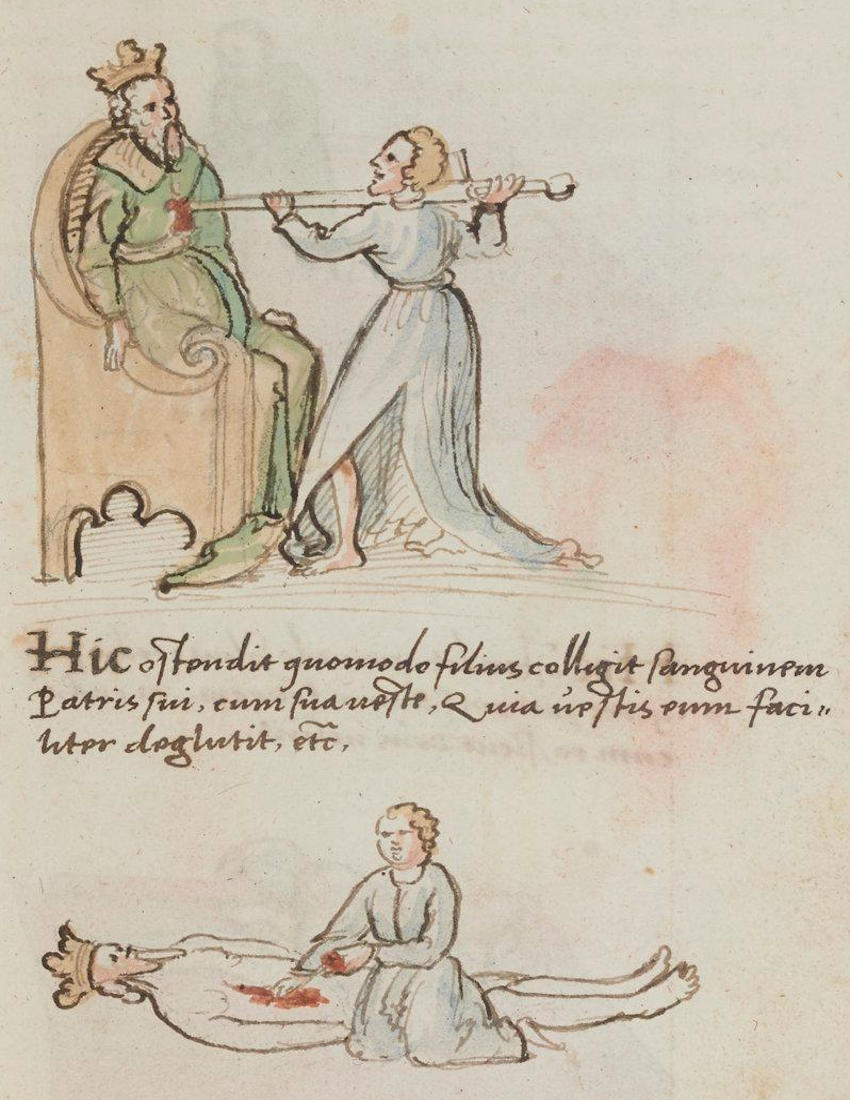 Hic ostendit quomodo filius colligit sanguinem
Patris sui, cum sua ueste, Quia vestis eum faci„
liter deglutit, etc̃,